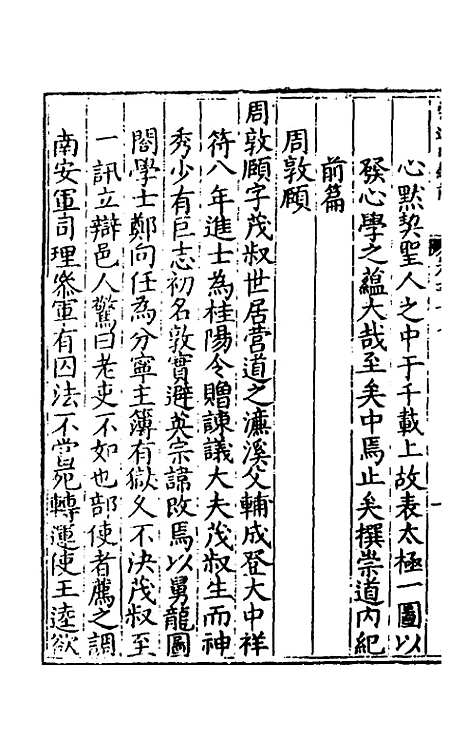 心黙契聖人之中于千載上故表太極一圖以
發心學之蘊大哉至矣中焉止矣撰崇道内紀
前篇
周敦頤
周敦頤字茂叔世居營道之濂溪父輔成登大中祥
符八年進士為桂陽令贈諫議大夫茂叔生而神
秀少有巨志初名敦實避英宗諱改焉以舅龍圖
閣學士鄭向任為分寧主簿有獄久不決茂叔至
一訊立辯邑人驚曰老吏不如也部使者薦之調
南安軍司理叅軍有囚法不當死轉運使王逵欲